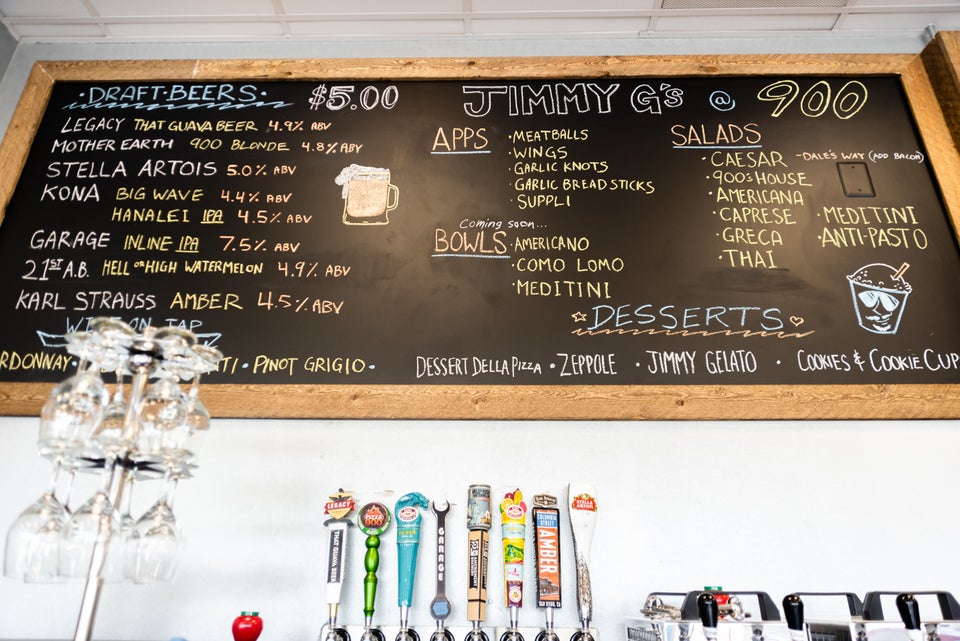 ·DRAFT·BEERS· $5.00
LEGACY THAT GUAVA BEER 4.9% ABV
MOTHER EARTH 900 BLONDE 4.8% ABV
STELLA ARTOIS 5.0% ABV
KONA BIG WAVE 4.4% ABV
HANALEI IPA 4.5% ABV
GARAGE INLINE IPA 7.5% ABV
21ST A.B. HELL OR HIGH WATERMELON 4.9% ABV
KARL STRAUSS AMBER 4.5% ABV
ON TAP
RDONNAY· TI · PINOT GRIGIO·
JIMMY G's @ 900
APPS
·MEATBALLS
·WINGS
·GARLIC KNOTS
·GARLIC BREAD STICKS
·SUPPLI
Coming soon...
BOWLS
·AMERICANO
·COMO LOMO
·MEDITINI
SALADS
·CAESAR -DALE'S WAY (ADD BACON)
·900's HOUSE
·AMERICANA
·CAPRESE
·GRECA
·THAI
·MEDITINI
·ANTI-PASTO
DESSERTS
DESSERT DELLA PIZZA ·ZEPPOLE ·JIMMY GELATO · COOKIES & COOKIE CUP
LEGACY
THAT GUAVA BEER
PIZZA
900
GARAGE
COLUMBIA
STREET
AMBER
STELLA
ARTOIS